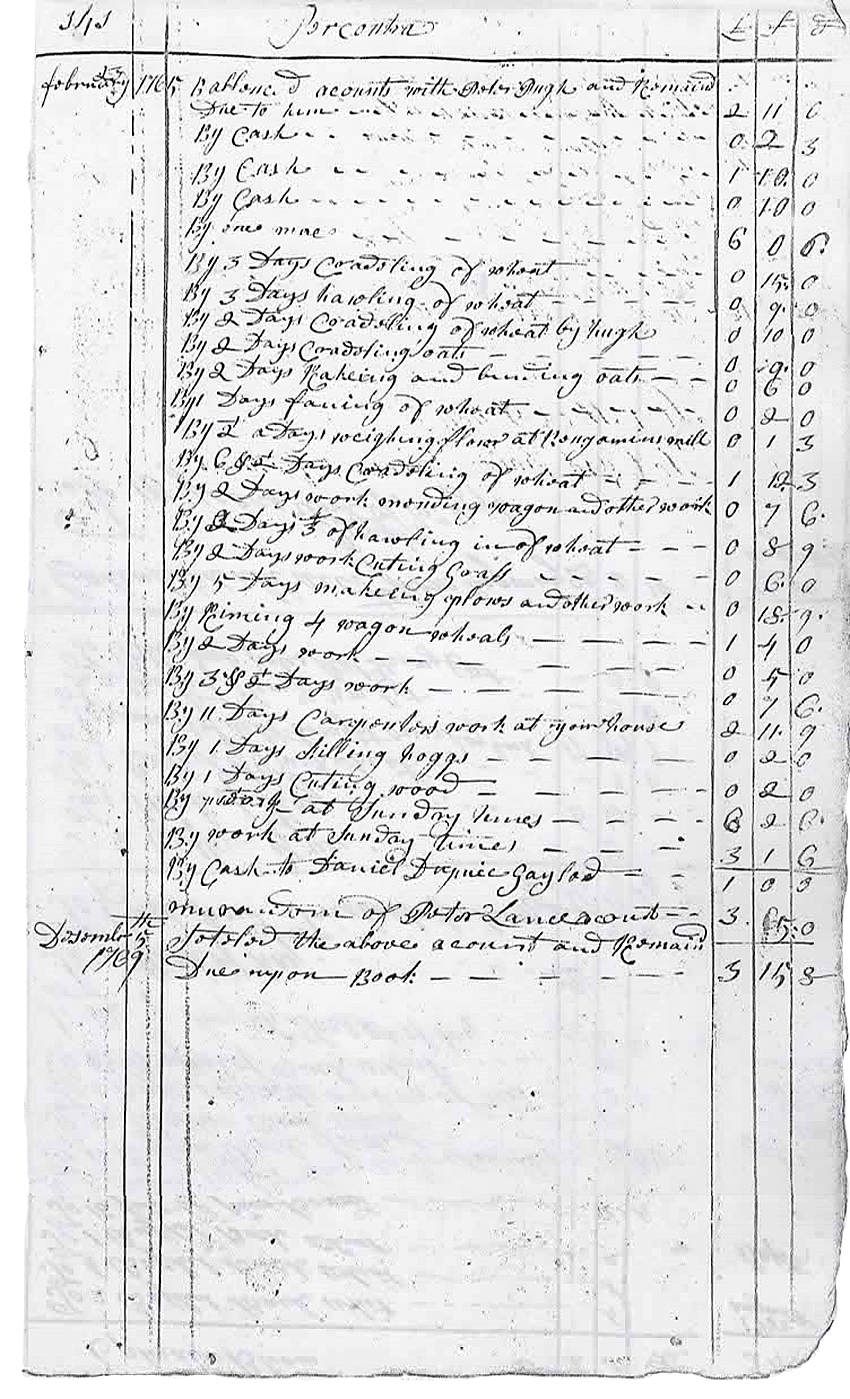 141 Per contra £ s d
february 13 1765 Ballenced acounts with Peter Pugh and Remaind
Due to him 2 11 6
By Cash 0 2 3
By Cash 1 10 0
By Cash 0 10 0
By one mare 6 0 6
By 3 Days Cradeling of wheat 0 15 0
By 3 Days hawling of wheat 0 9 0
By 2 Days Cradeling of wheat by hugh 0 10 0
By 2 Days Cradeling oats 0 9 0
By 2 Days Rakeing and binding oats 0 6 0
By 1 Days faning of wheat 0 2 0
By ½ a Days weighing flour at Bengamins mill 0 1 3
By 6 & ½ Days Cradeling of wheat 1 12 3
By 2 Days work mending wagon and other work 0 7 6
By Days of hawling in of wheat 0 8 9
By 2 Days work Cuting Grass 0 6 0
By 5 Days makeing plows and other work 0 18 9
By Riming 4 wagon wheals 1 4 0
By 2 Days work 0 5 0
By 3 & ½ Days work 0 7 6
By 11 Days Carpenters work at your house 2 11 9
By 1 Days killing hoggs 0 2 0
By 1 Days Cuting wood 0 2 0
By work at Sundry times 2 6
By work at Sunday times 3 1 6
By Cash to Daniel 1 0 0
of Peter Lance acount 3 15 0
Desember th 5 Seteled the above acount and Remain
1769 Due upon Book 3 15 8